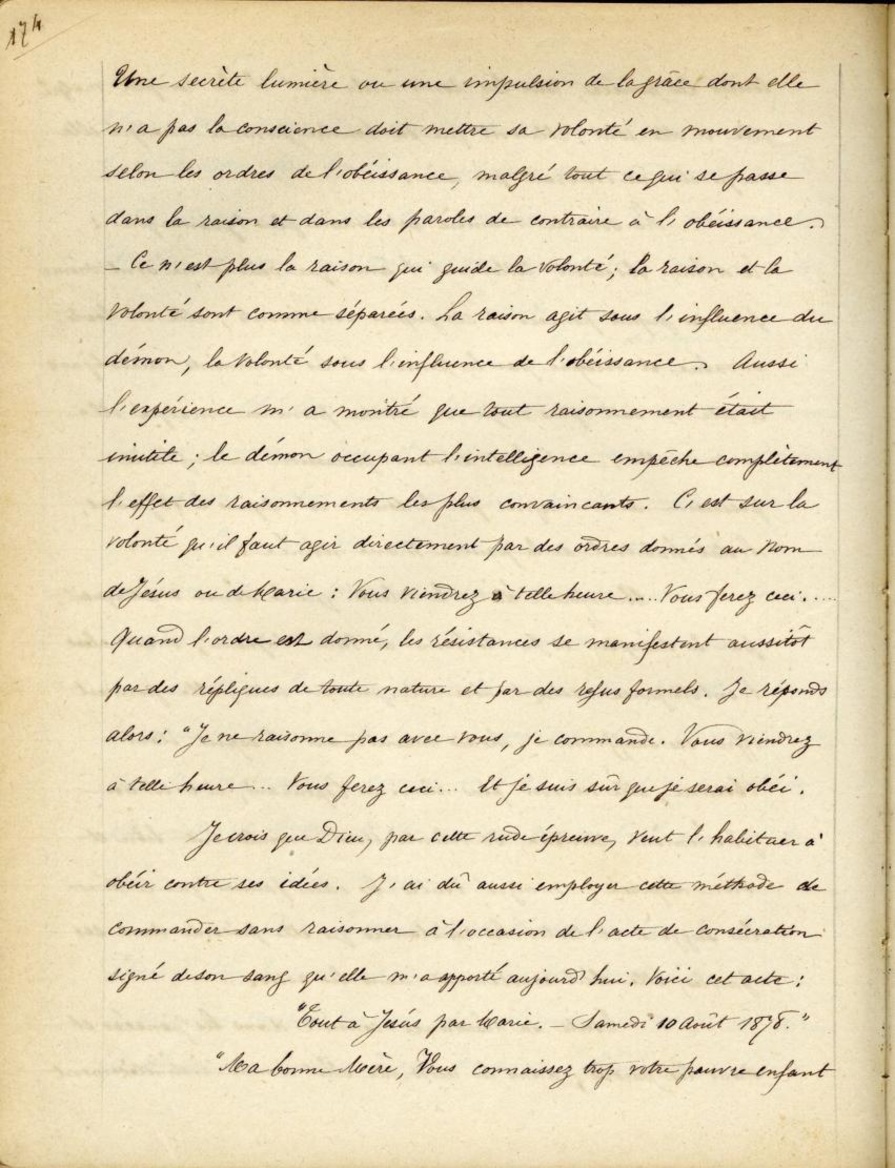 174
Une secrète lumière ou une impulsion de la grâce dont elle
n'a pas la conscience doit mettre sa volonté en mouvement
selon les ordres de l'obéissance, malgré tout ce qui se passe
dans la raison et dans les paroles de contraire à l'obéissance.
_ Ce n'est plus la raison qui guide la volonté; la raison et la
volonté sont comme séparées. La raison agit sous l'influence du
démon, la volonté sous l'influence de l'obéissance. Aussi
l'expérience m'a montré que tout raisonnement était
inutile; le démon occupant l'intelligence empêche complètement
l'effet des raisonnements les plus convaincants. C'est sur la
volonté qu'il faut agir directement par des ordres donnés au nom
de Jésus ou de Marie : Vous viendrez à telle heure.... Vous ferez ceci....
Quand l'ordre est donné, les résistances se manifestent aussitôt
par des répliques de toute nature et par des refus formels. Je réponds
alors: "Je ne raisonne pas avec vous, je commande. Vous viendrez
à telle heure... Vous ferez ceci... Et je suis sûr que je serai obéi.
Je crois que Dieu, par cette rude épreuve, veut l'habituer à
obéir contre ses idées. J'ai dû aussi employer cette méthode de
commander sans raisonner à l'occasion de l'acte de consécration
signé de son sang qu'elle m'a apporté aujourd'hui. Voici cet acte:
"Tout à Jésus par Marie. _ Samedi 10 Août 1878."
"Ma bonne Mère, Vous connaissez trop votre pauvre enfant